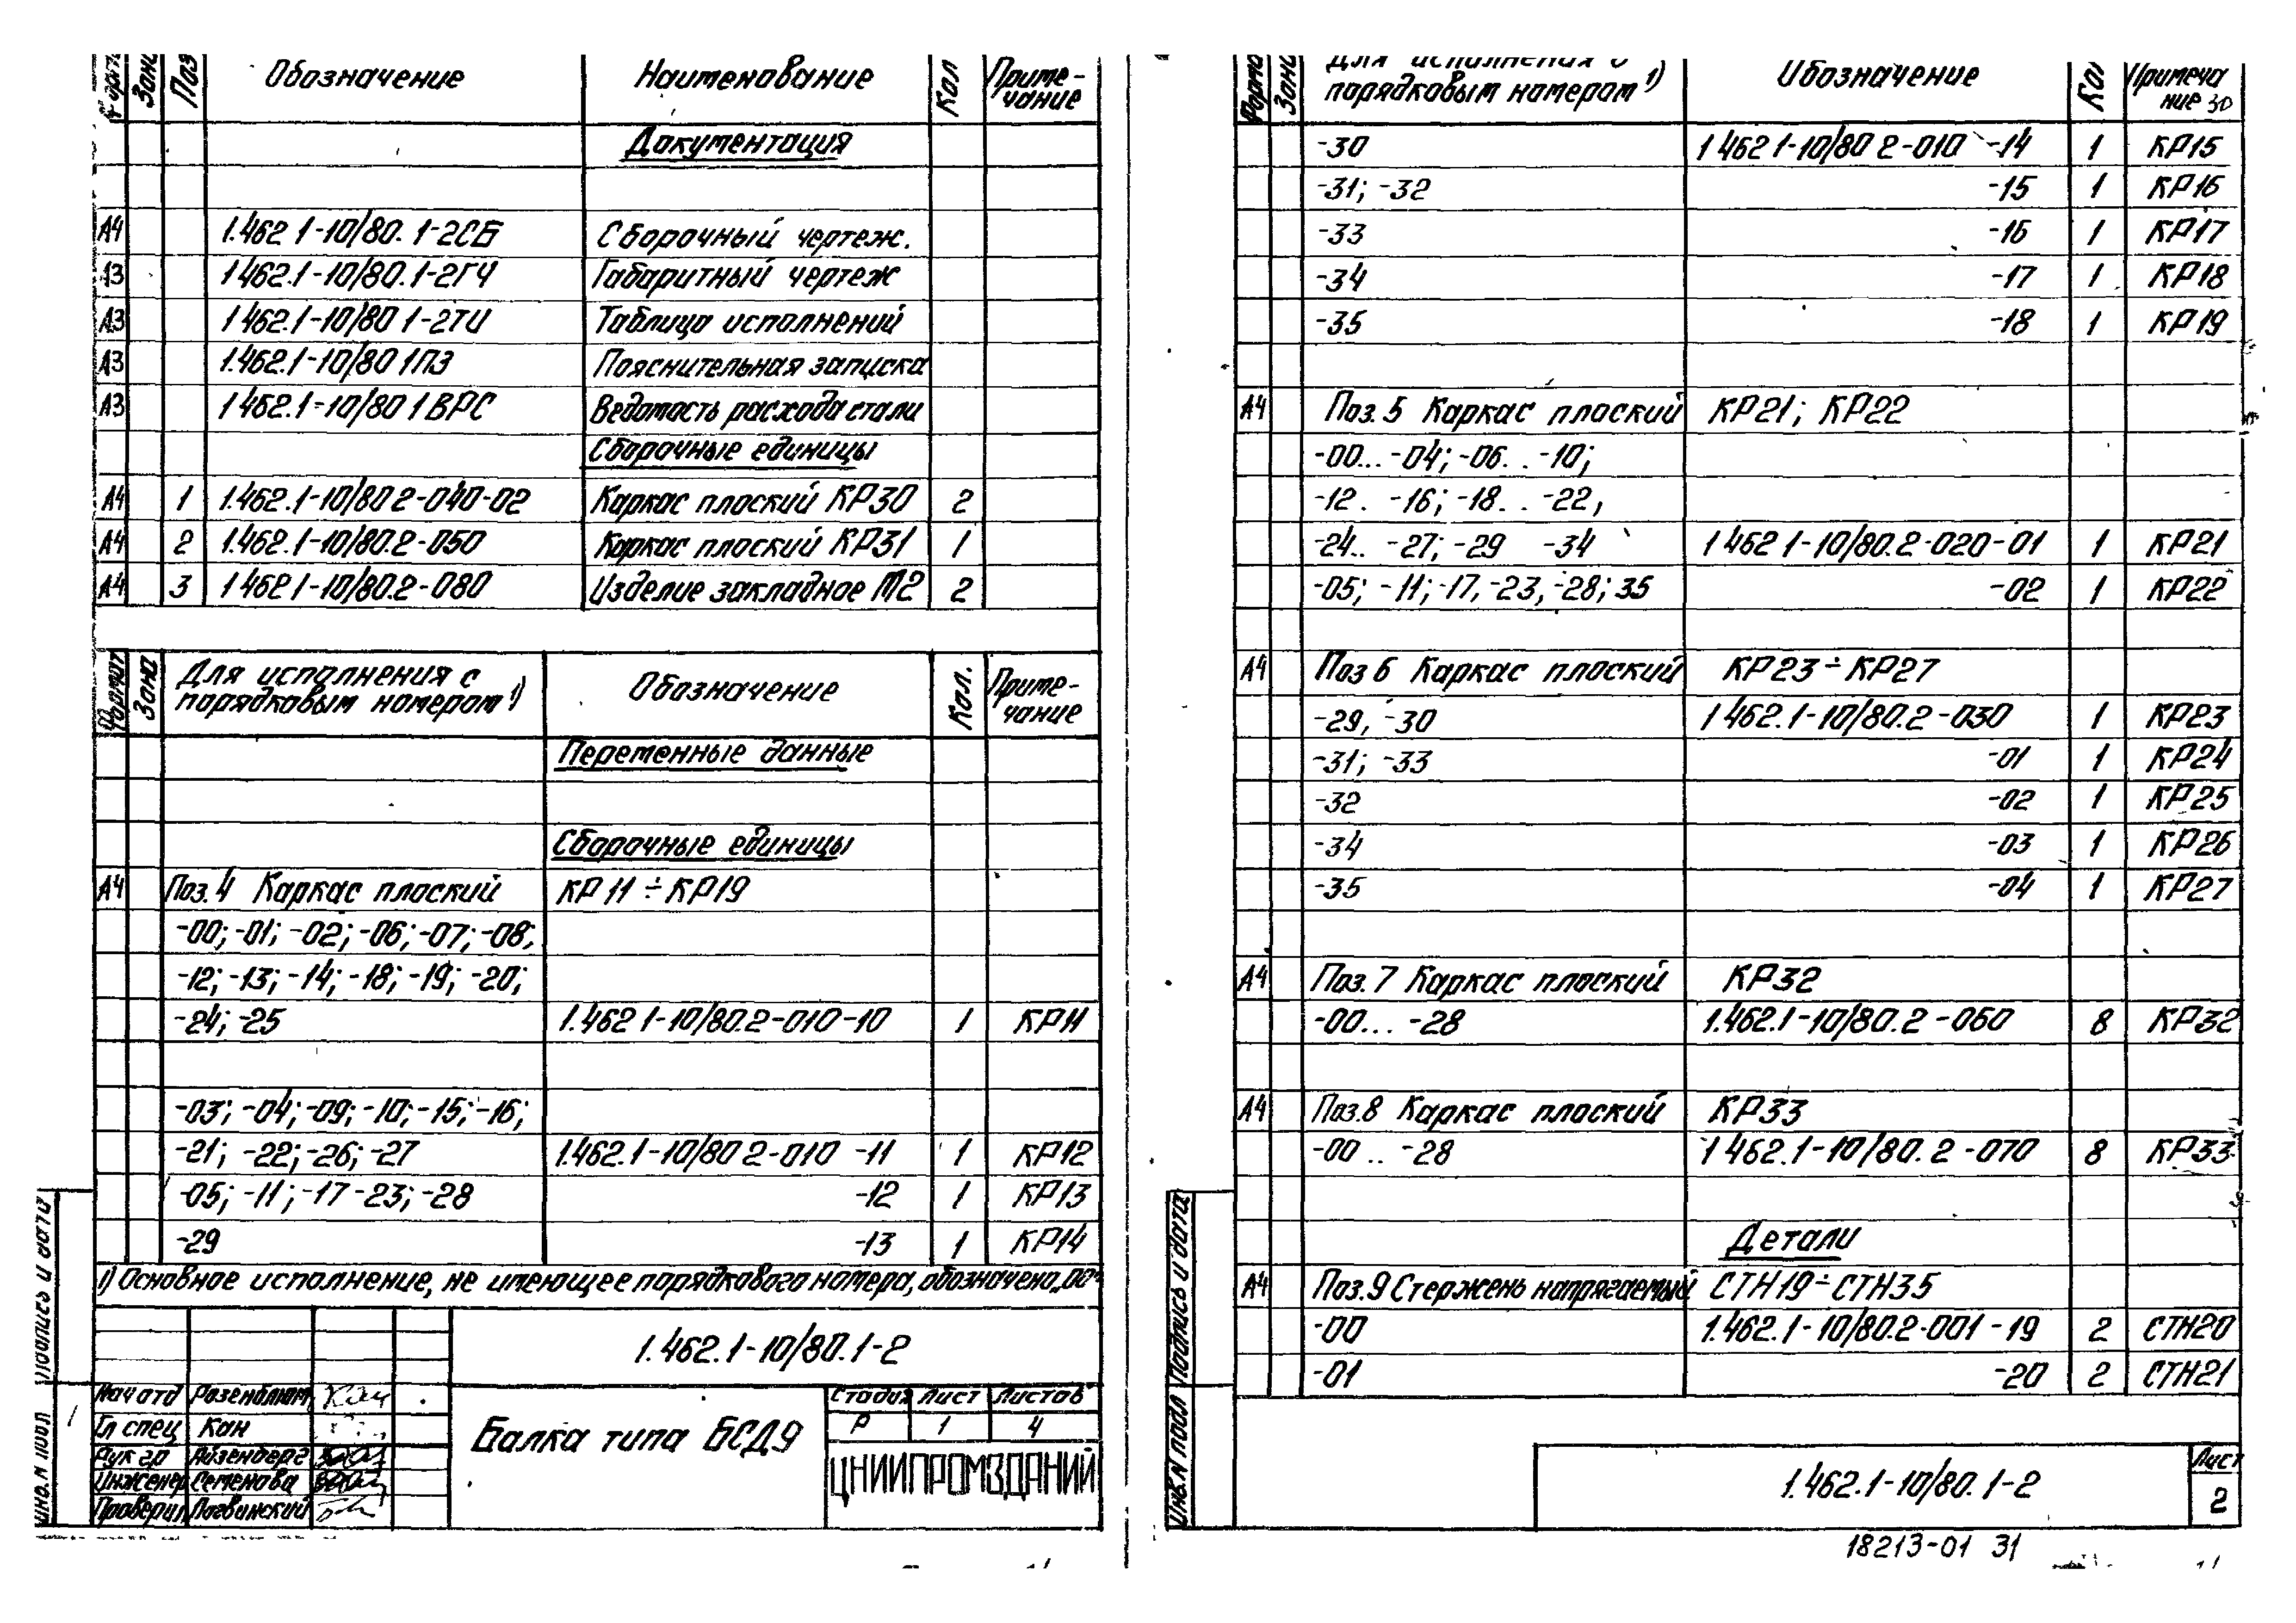 Формат Зона Поз Обозначение Наименование Кол Приме-
чание
Документация
А4 1.462 1-10/80. 1-2СБ Сборочный чертеж.
А3 1 462.1-10/80.1-2ГЧ Габаритный чертеж
А3 1 462.1-10/80 1-2ТИ Таблица исполнений
А3 1.462.1-10/80 1ПЗ Пояснительная записка
А3 1 462.1-10/80 1ВРС Ведомость расхода стали
Сборочные единицы
А4 1 1.462.1-10/80 2-040-02 Каркас плоский КР30 2
А4 2 1.462.1-10/80.2-050 Каркас плоский КР31 1
А4 3 1 462 1-10/80.2-080 Изделие закладное М2 2
Формат Зона Для исполнения с
порядковым номером 1) Обозначение Кол. Приме-
чание
Переменные данные
Сборочные единицы
А4 Поз. 4 Каркас плоский КР 11 ÷ КР19
-00; -01; -02; -06; -07; -08;
-12; -13; -14; -18; -19; -20;
-24; -25 1.462 1-10/80.2-010-10 1 КР11
-03; -04; -09; -10; -15; -16;
-21; -22; -26; -27 1.462.1-10/80 2-010 -11 1 КР12
-05; -11; -17 -23; -28 -12 1 КР13
-29 -13 1 КР14
1) Основное исполнение, не имеющее порядкового номера, обозначено „00"
1.462.1-10/80.1-2
Нач отд Розенблюм
Гл спец Кан
Рук гр Айзенберг
Инженер Семенова
Проверил Логвинский
Балка типа БСД9
Стадия Лист Листов
Р 1 4
ЦНИИПРОМЗДАНИЙ
Подпись и дата
Инв. N подл
Формат Зона Для исполнения с
порядковым номером 1) Обозначение Кол Примеча
ние 30
-30 1 462 1-10/80 2-010 -14 1 КР15
-31; -32 -15 1 КР16
-33 -16 1 КР17
-34 -17 1 КР18
-35 -18 1 КР19
А4 Поз. 5 Каркас плоский КР21; КР22
-00... -04; -06. . -10;
-12 . -16; -18. . -22,
-24.. -27; -29 -34 1 462 1-10/80.2-020-01 1 КР21
-05; -11; -17, -23, -28; 35 -02 1 КР22
А4 Поз 6 Каркас плоский КР23 ÷ КР27
-29, -30 1 462.1-10/80.2-030 1 КР23
-31; -33 -01 1 КР24
-32 -02 1 КР25
-34 -03 1 КР26
-35 -04 1 КР27
А4 Поз. 7 Каркас плоский КР32
-00... -28 1.462.1-10/80.2-060 8 КР32
А4 Поз.8 Каркас плоский КР33
-00 .. -28 1 462.1-10/80. 2 -070 8 КР33
Детали
А4 Поз. 9 Стержень напрягаемый СТН19÷СТН35
-00 1.462.1-10/80.2-001 -19 2 СТН20
-01 -20 2 СТН21
Подпись и дата
Инв. N подл
1.462.1-10/80.1-2
Лист
2
18213-01 31